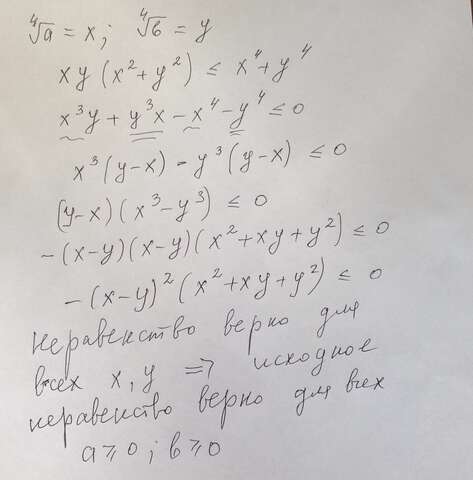 ∜a = x; ∜b = y
xy(x²+y²) ≤ x⁴+y⁴
x³y + y³x - x⁴ - y⁴ ≤ 0
x³(y-x) - y³(y-x) ≤ 0
(y-x)(x³-y³) ≤ 0
-(x-y)(x-y)(x²+xy+y²) ≤ 0
-(x-y)²(x²+xy+y²) ≤ 0
Неравенство верно для
всех x, y => исходное
неравенство верно для всех
a ⩾ 0; b ⩾ 0